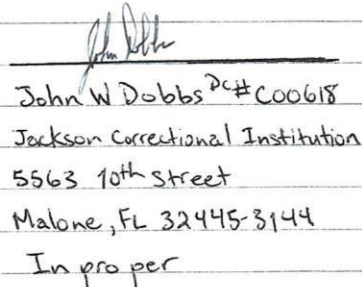 John Dobbs
John W Dobbs DC# C00618
Jackson Correctional Institution
5563 10th Street
Malone, FL 32445-3144
In pro per